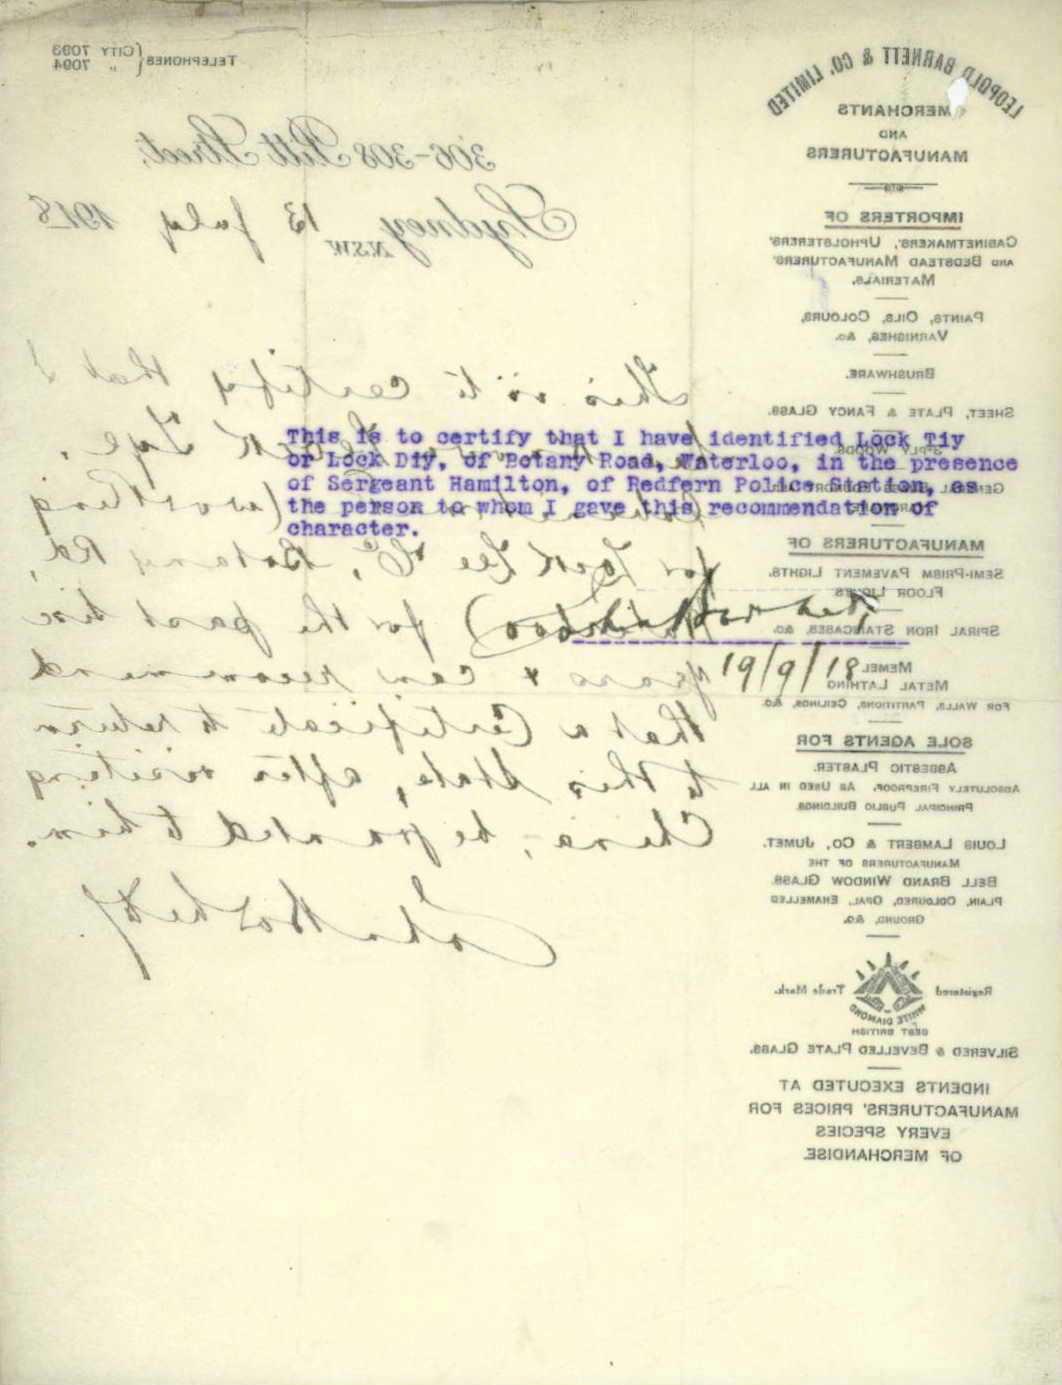 This is to certify that I have identified Lock Tiy
or Lock Diy, of Botany Road, Waterloo, in the presence
of Sergeant Hamilton, of Redfern Police Station, as
the person to whom I gave this recommendation of
character.
19/9/18
TELEPHONES { CITY 7093
" 7094
LEOPOLD BARNETT & CO. LIMITED
MERCHANTS
AND
MANUFACTURERS
306-308 Pitt Street,
Sydney 13 July 1918
N.S.W.
IMPORTERS OF
CABINETMAKERS', UPHOLSTERERS'
AND BEDSTEAD MANUFACTURERS'
MATERIALS.
PAINTS, OILS, COLOURS,
VARNISHES, &c.
BRUSHWARE.
SHEET, PLATE & FANCY GLASS.
3 PLY WOODS.
MANUFACTURERS OF
SEMI-PRISM PAVEMENT LIGHTS.
FLOOR LIGHTS
SPIRAL IRON STAIRCASES, &c.
MEMEL
METAL LATHING
FOR WALLS, PARTITIONS, CEILINGS, &c.
SOLE AGENTS FOR
ASBESTIC PLASTER.
ABSOLUTELY FIREPROOF. AS USED IN ALL
PRINCIPAL PUBLIC BUILDINGS.
LOUIS LAMBERT & CO, JUMET.
MANUFACTURERS OF THE
BELL BRAND WINDOW GLASS.
PLAIN, COLOURED, OPAL, ENAMELLED
GROUND, &c.
Registered Trade Mark.
WHITE DIAMOND
BEST BRITISH
SILVERED & BEVELLED PLATE GLASS.
INDENTS EXECUTED AT
MANUFACTURERS' PRICES FOR
EVERY SPECIES
OF MERCHANDISE.
This is to certify that I
Lock Tye,
(working
for Lock Lee & Co, Botany Rd,
Waterloo) for the past
years & can recommend
that a Certificate to return
to this State, after visiting
China, be granted to him.